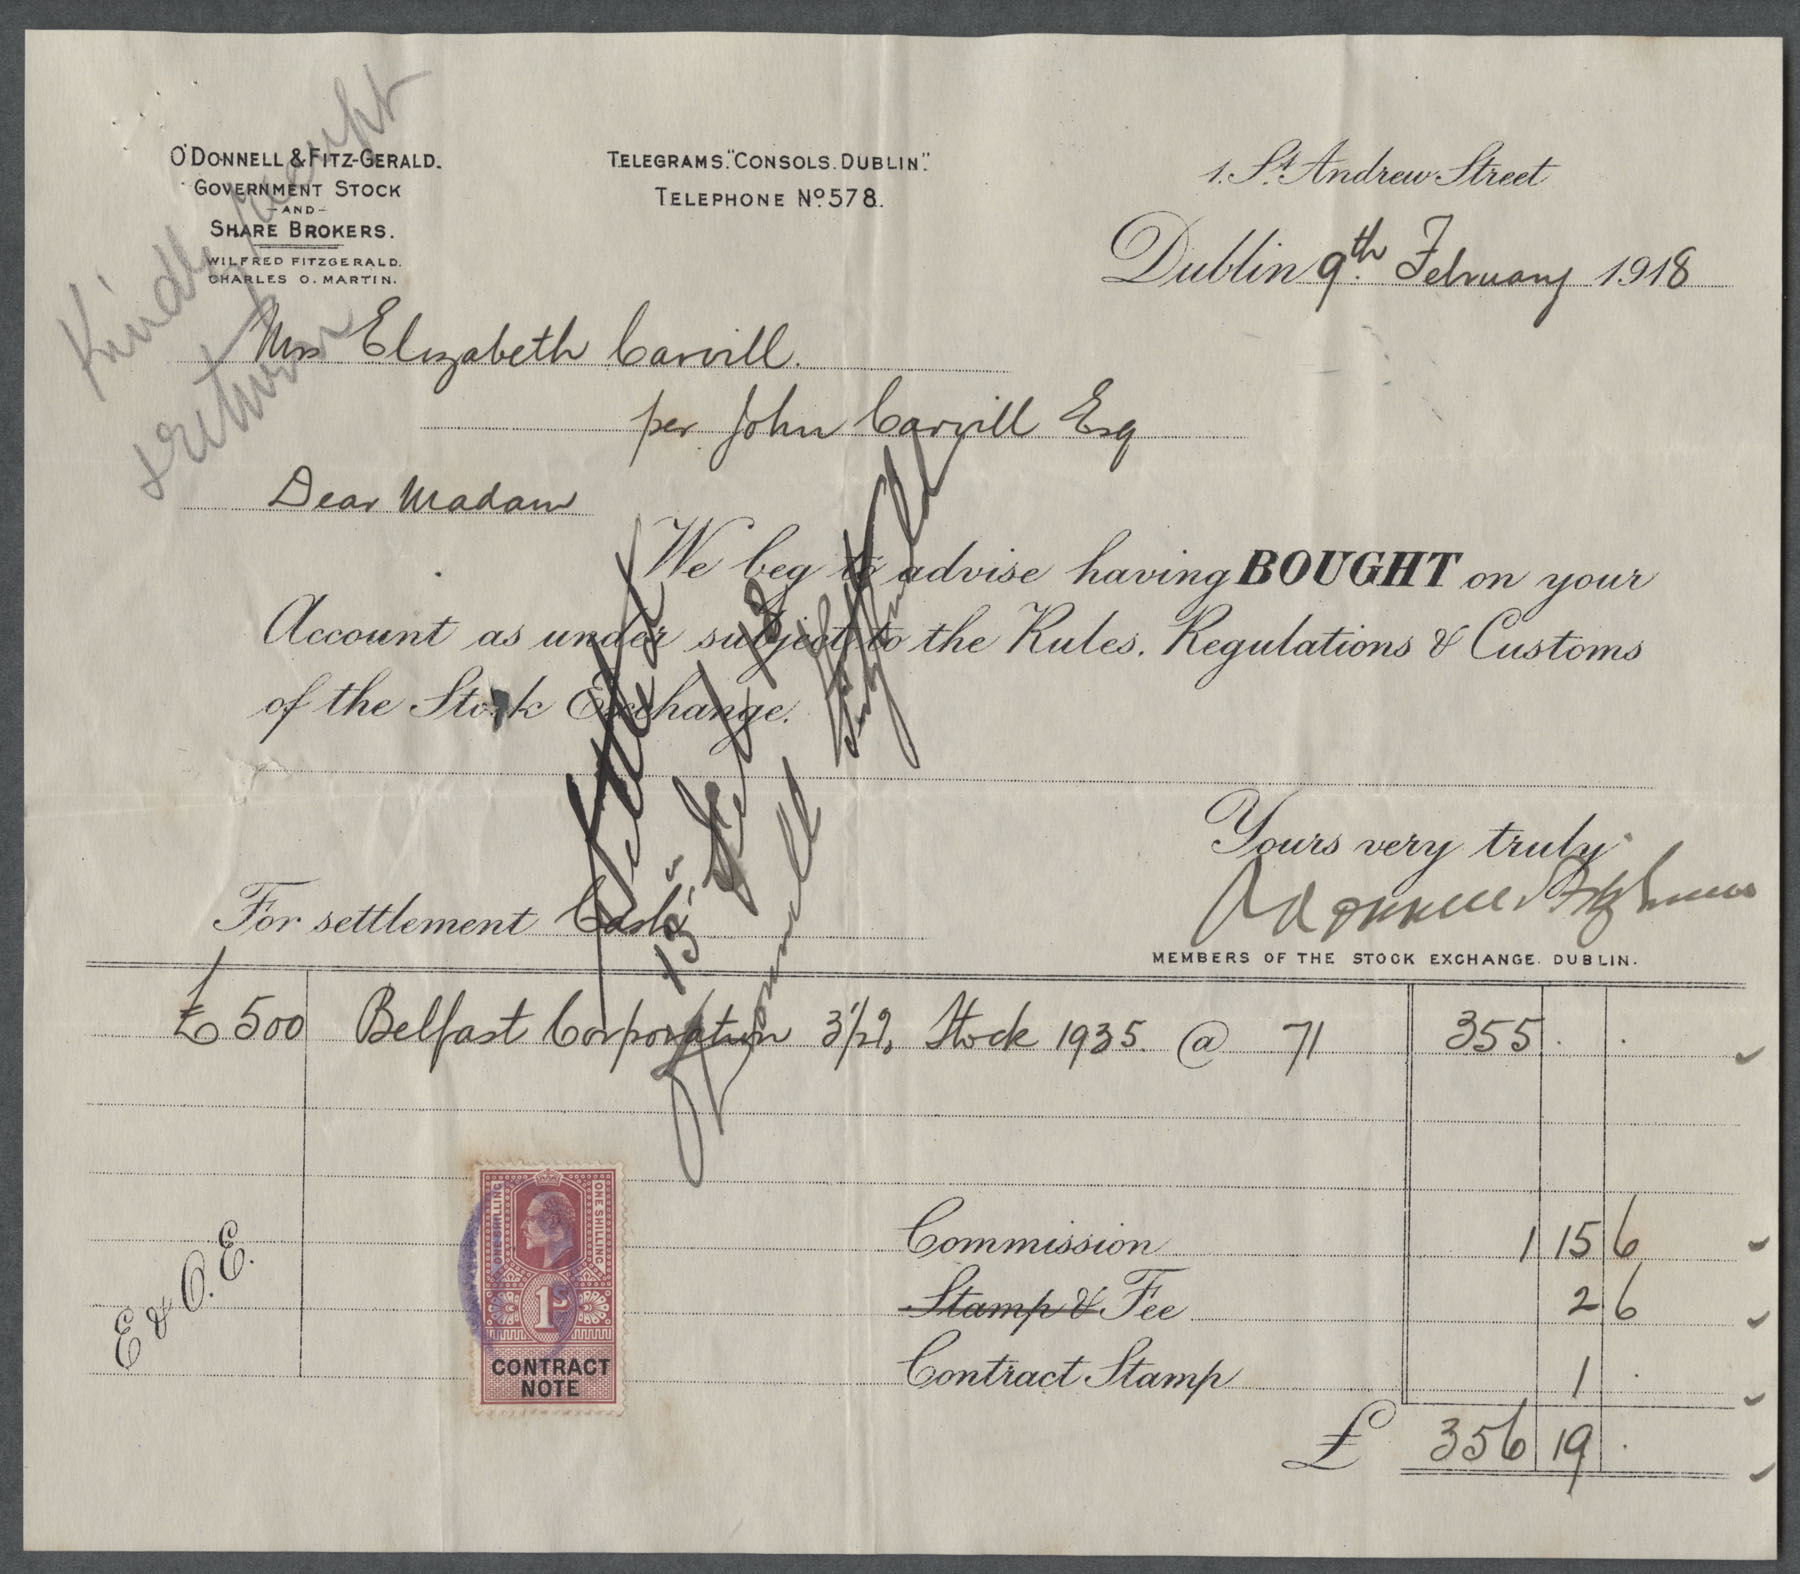 Kindly receipt
& return
O'DONNELL & FITZ-GERALD.
GOVERNMENT STOCK
-AND-
SHARE BROKERS.
WILFRED FITZGERALD.
CHARLES O. MARTIN.
TELEGRAMS. "CONSOLS. DUBLIN."
TELEPHONE No. 578.
1. St. Andrew Street
Dublin 9th February 1918
Mrs Elizabeth Carvill.
per John Carvill Esq
Dear Madam
We beg to advise having BOUGHT on your
Account as under subject to the Rules, Regulations & Customs
of the Stock Exchange.
Yours very truly
O'Donnell & Fitzgerald
For settlement Cash
MEMBERS OF THE STOCK EXCHANGE. DUBLIN.
Settled
13th Feb 18
O'Donnell Fitzgerald
£500 Belfast Corporation 3½% Stock 1935 @ 71 355 . .
E & O. E.
Commission 1 15 6
Stamp & Fee 2 6
Contract Stamp 1 .
£ 356 19 .
ONE SHILLING
ONE SHILLING
1S
CONTRACT
NOTE